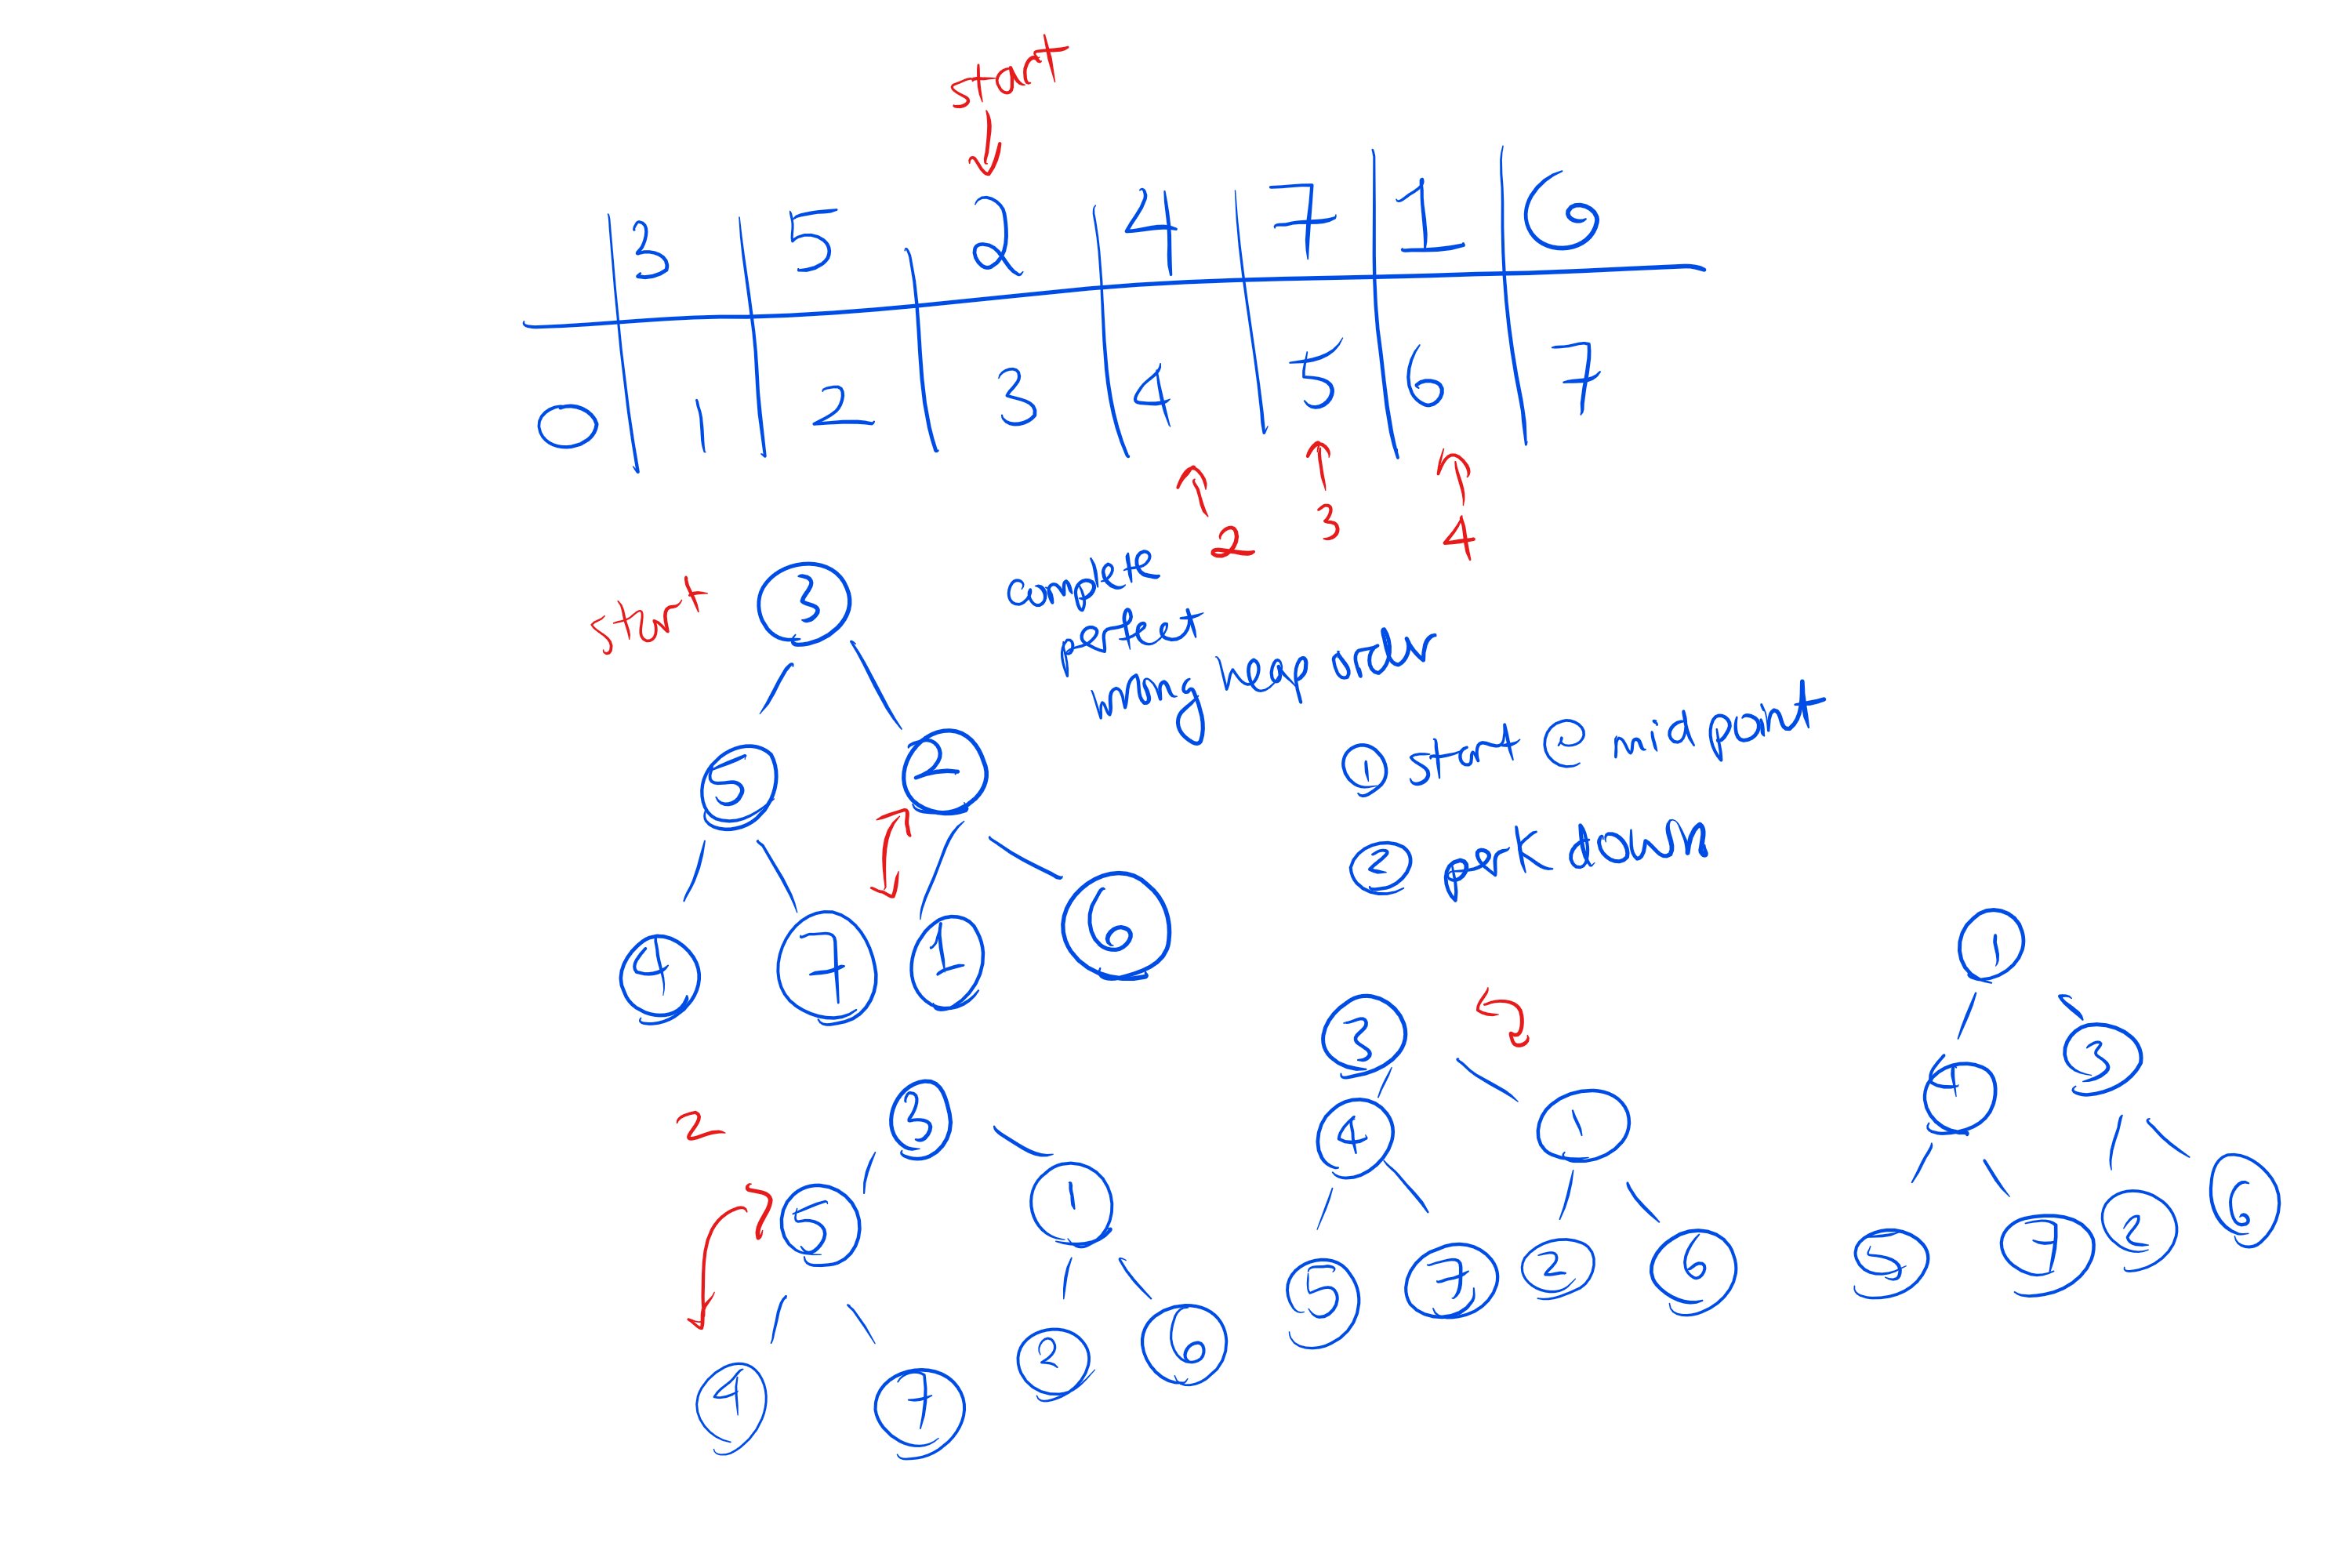 start
3 5 2 4 7 1 6
0 1 2 3 4 5 6 7
2 3 4
start
complete
perfect
heap order
① start @ midpoint
② perk down
3
5 2
4 7 1 6
2
3
5 1
4 7 2 6
3
4 1
5 7 2 6
1
4 3
5 7 2 6